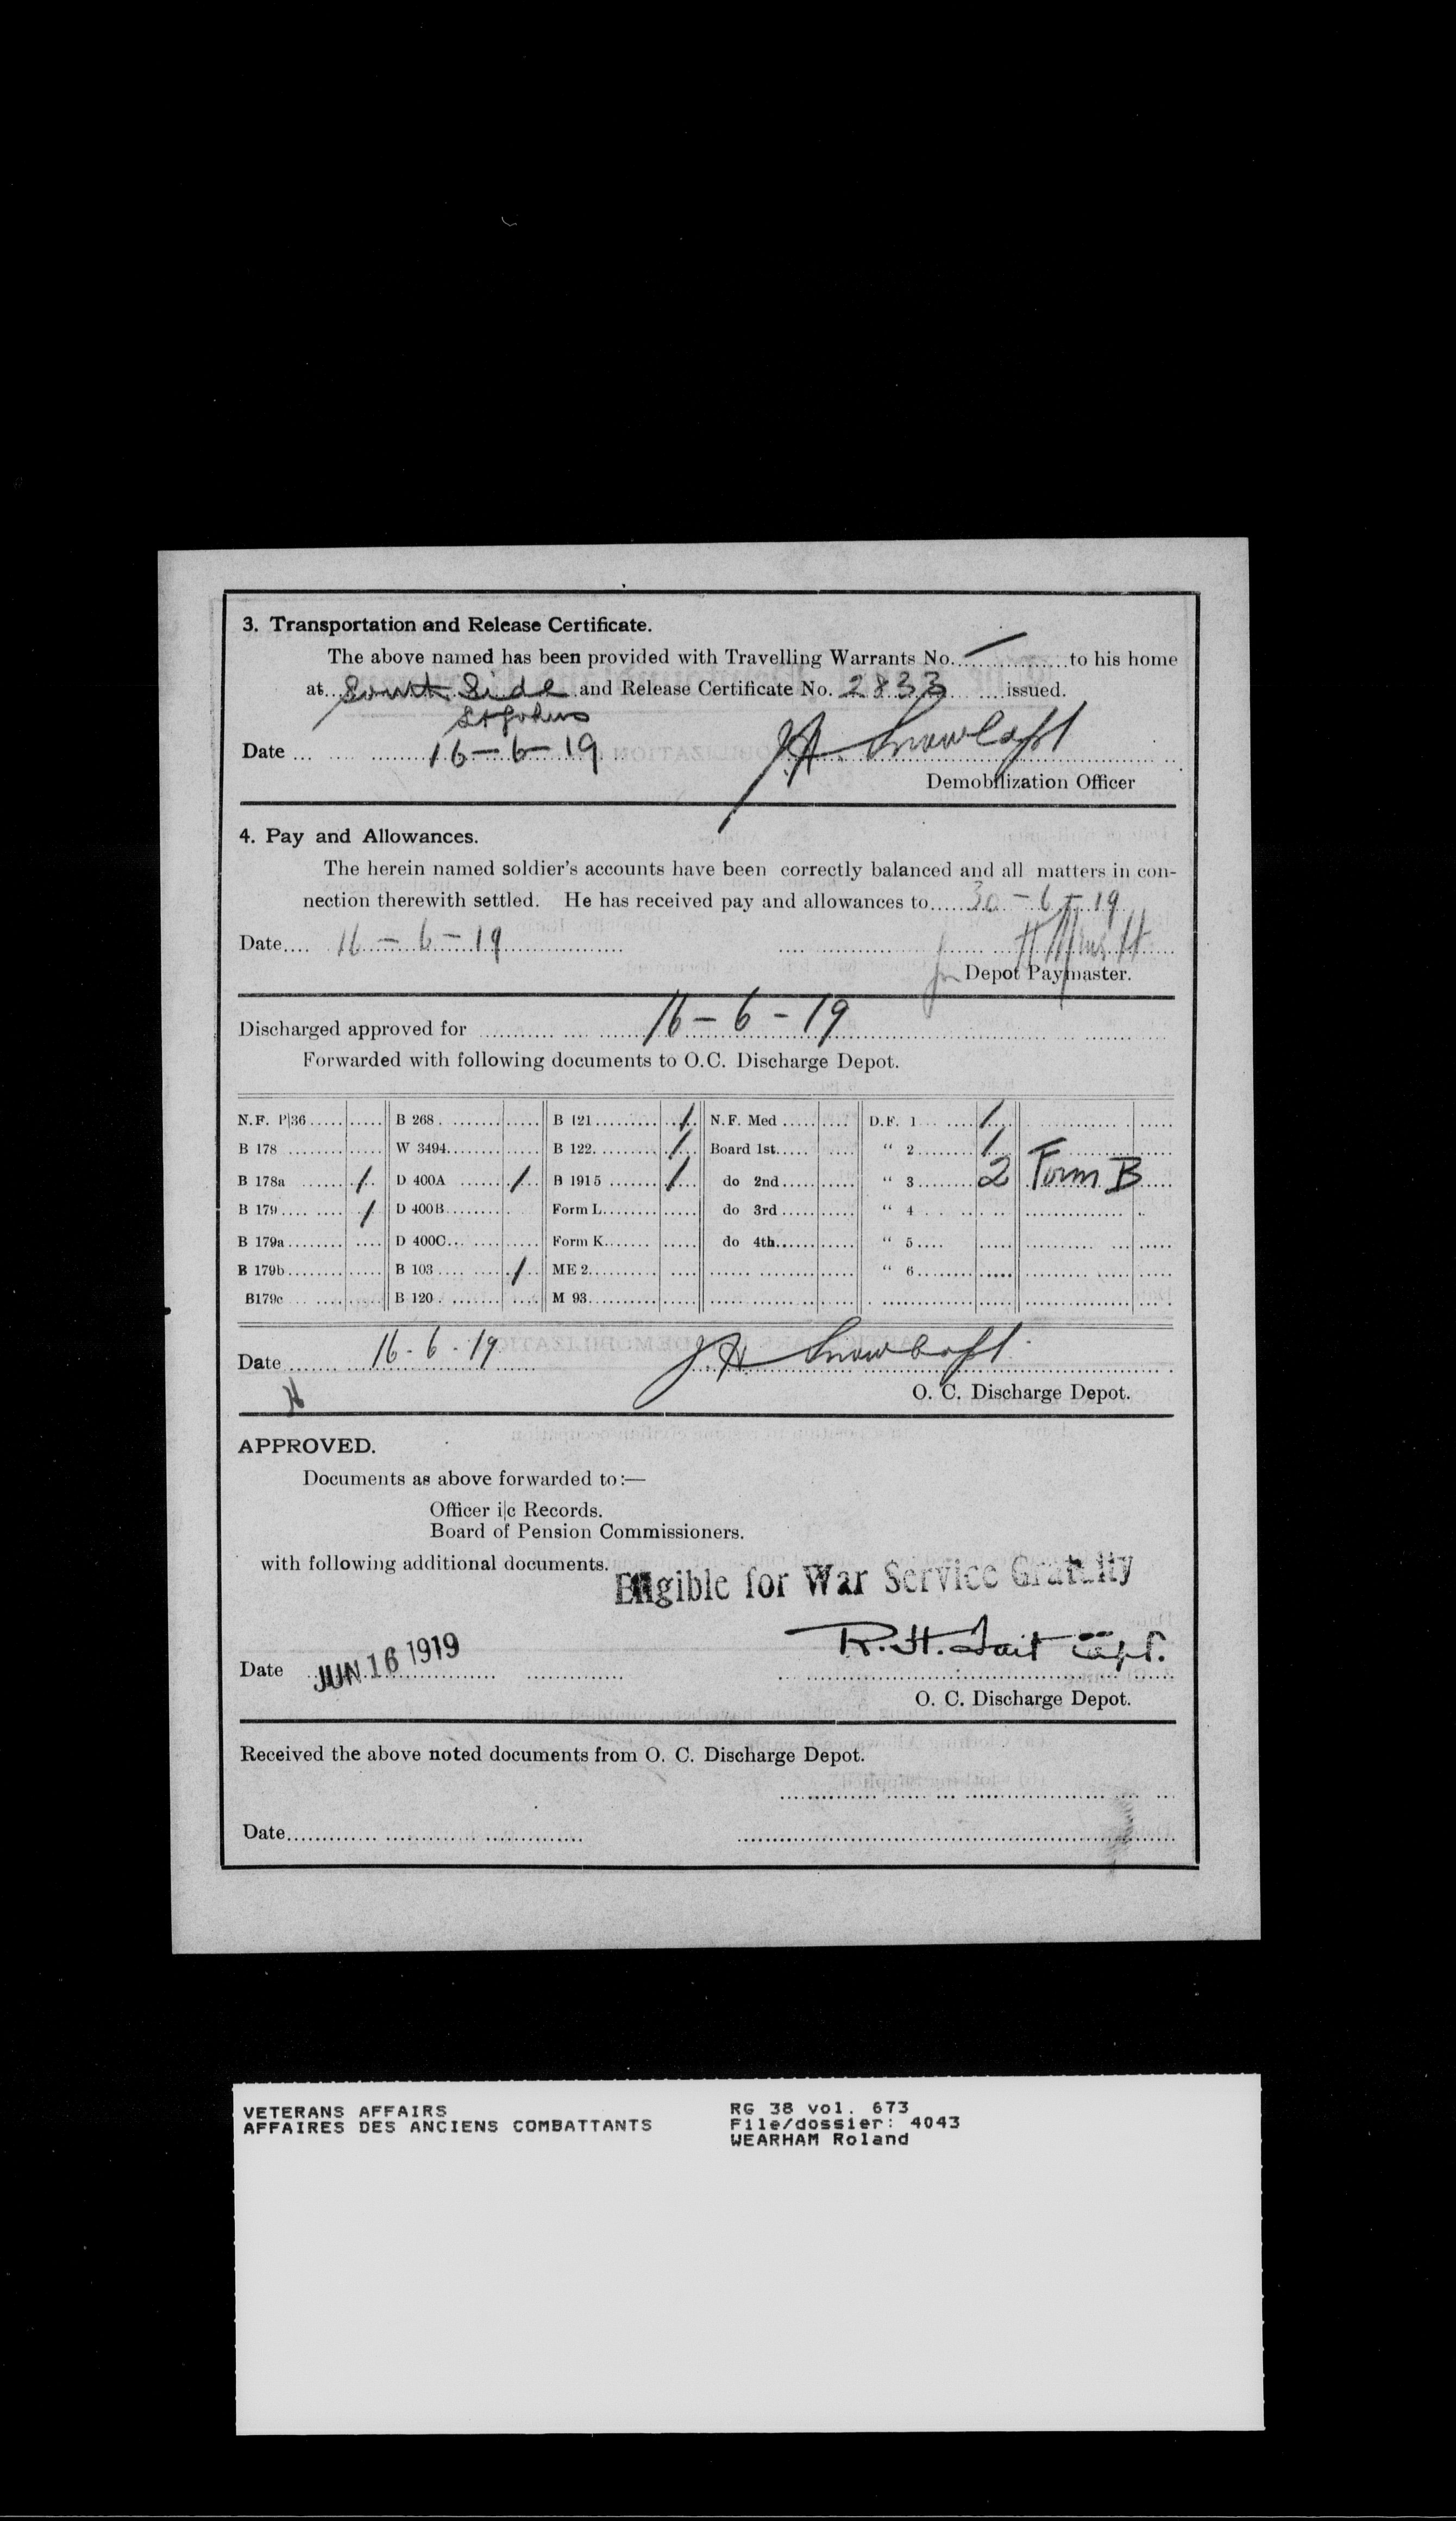 3. Transportation and Release Certificate.
The above named has been provided with Travelling Warrants No. — to his home
at South Side and Release Certificate No. 2833 issued.
St Johns
Date 16-6-19
Demobilization Officer
4. Pay and Allowances.
The herein named soldier's accounts have been correctly balanced and all matters in con-
nection therewith settled. He has received pay and allowances to 30-6-19
Date 16-6-19
for Depot Paymaster.
Discharged approved for 16-6-19
Forwarded with following documents to O.C. Discharge Depot.
N.F. P|36 B 268 B 121 1 N.F. Med D.F. 1 1
B 178 W 3494 B 122 1 Board 1st " 2 1
B 178a 1 D 400A 1 B 1915 1 do 2nd " 3 2 Form B
B 179 1 D 400B Form L do 3rd " 4
B 179a D 400C Form K do 4th " 5
B 179b B 103 1 ME 2 " 6
B179c B 120 M 93
Date 16-6-19
O. C. Discharge Depot.
APPROVED.
Documents as above forwarded to:—
Officer i|c Records.
Board of Pension Commissioners.
with following additional documents.
Eligible for War Service Gratuity
R. H. Tait Capt.
Date JUN 16 1919
O. C. Discharge Depot.
Received the above noted documents from O. C. Discharge Depot.
Date
VETERANS AFFAIRS RG 38 vol. 673
AFFAIRES DES ANCIENS COMBATTANTS File/dossier: 4043
WEARHAM Roland